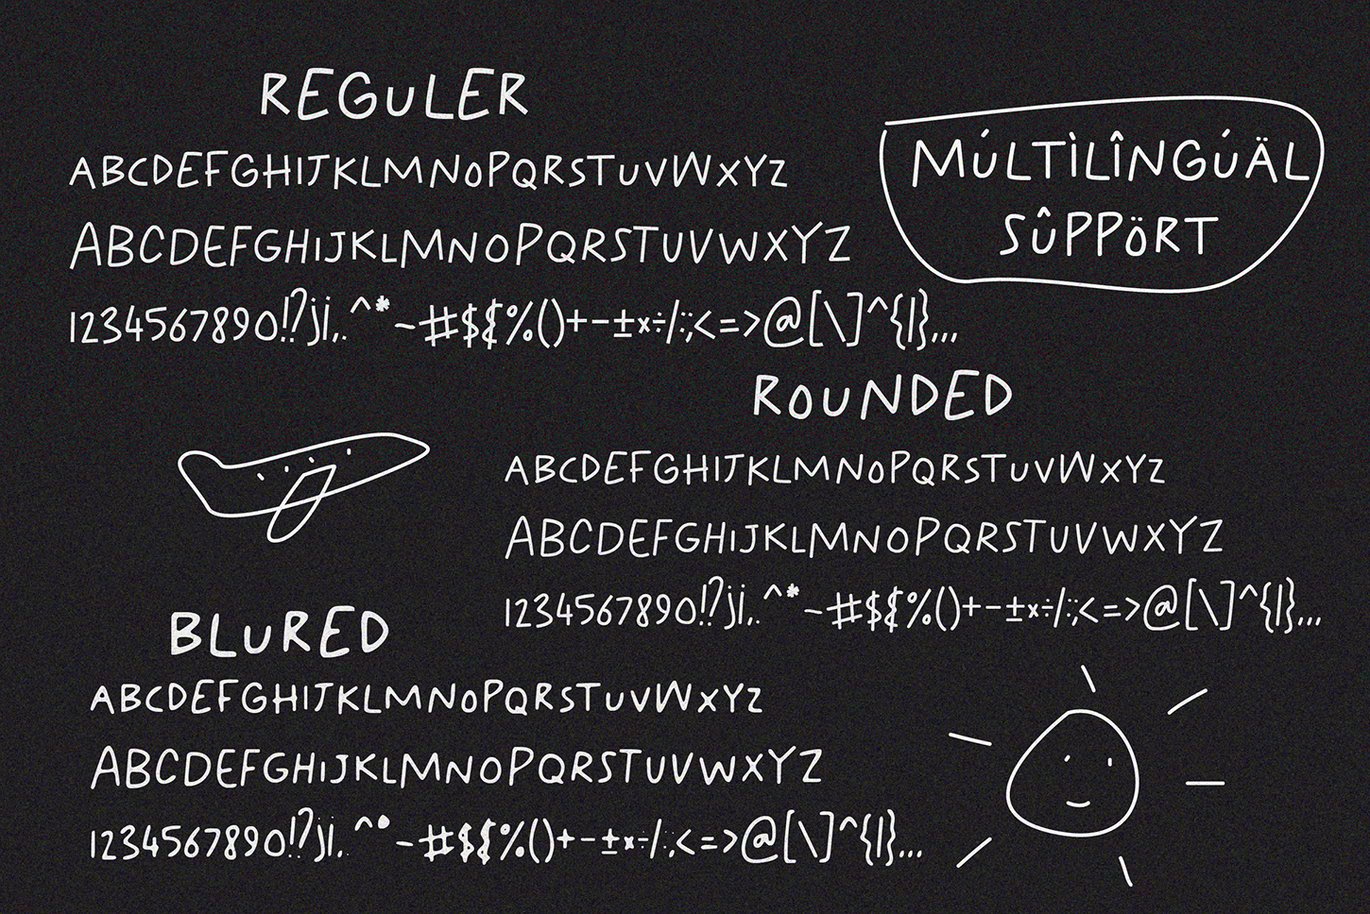 REGULER
ABCDEFGHIJKLMNOPQRSTUVWXYZ
ABCDEFGHIJKLMNOPQRSTUVWXYZ
1234567890!?j¡,.^*-#$₤%()+-±×÷/:;<=>@[\]^{|}...
MÚLTÌLÎNGÚÄL
SÛPPÖRT
ROUNDED
ABCDEFGHIJKLMNOPQRSTUVWXYZ
ABCDEFGHIJKLMNOPQRSTUVWXYZ
1234567890!?j¡,.^*-#$₤%()+-±×÷/:;<=>@[\]^{|}...
BLURED
ABCDEFGHIJKLMNOPQRSTUVWXYZ
ABCDEFGHIJKLMNOPQRSTUVWXYZ
1234567890!?j¡,.^*-#$₤%()+-±×÷/:;<=>@[\]^{|}...